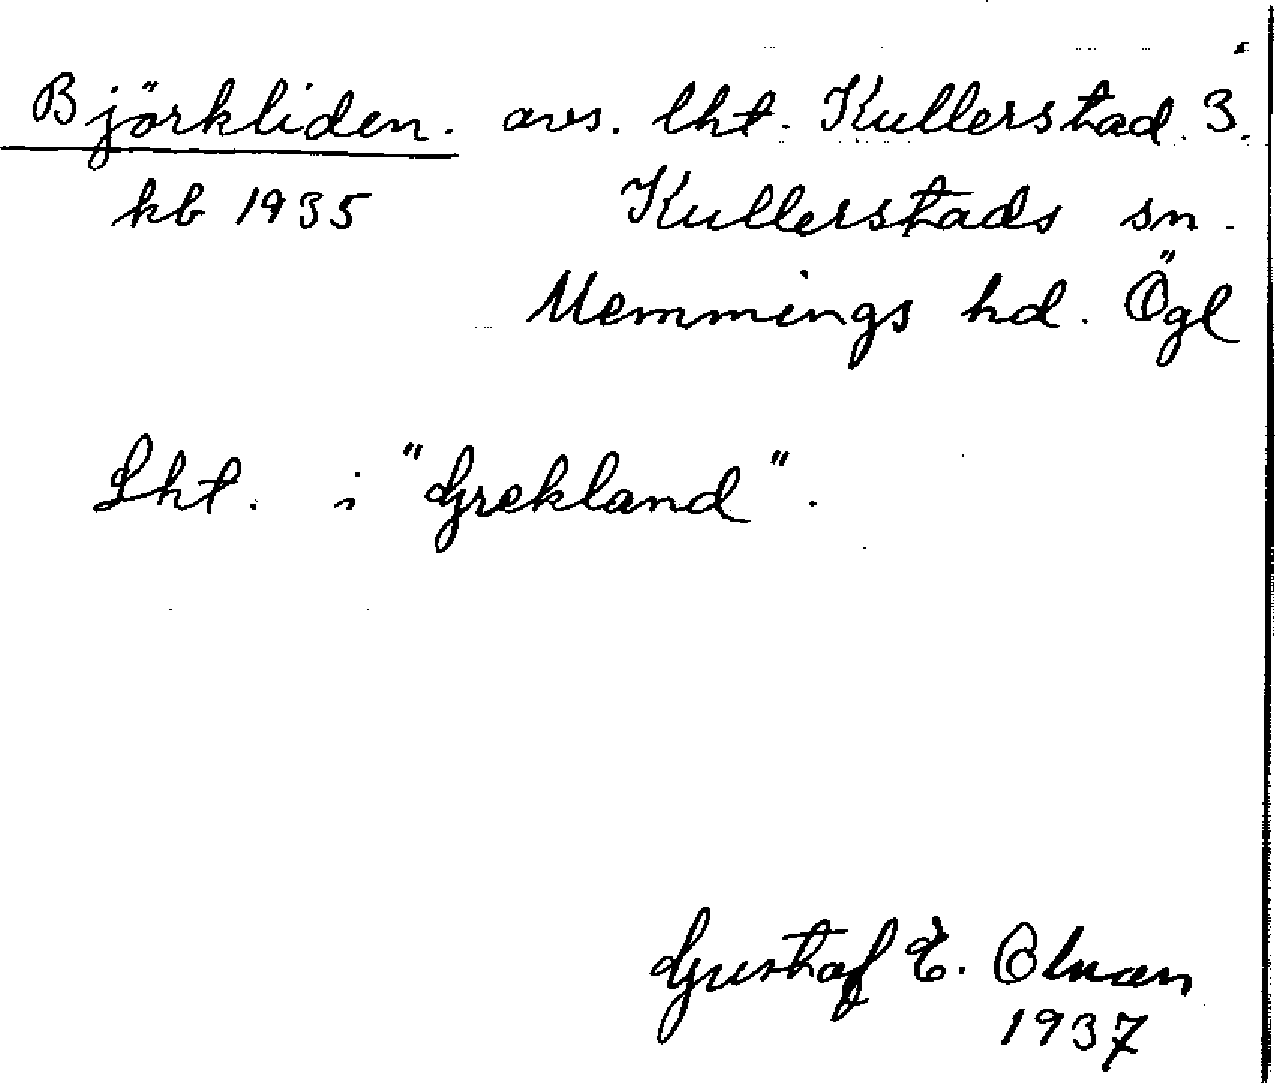 Björkliden. avs. lht. Kullerstad. 3.
kb 1935 Kullerstads sn.
Memmings hd. Ögl
Lht. i "Grekland".
Gustaf E. Olman
1937